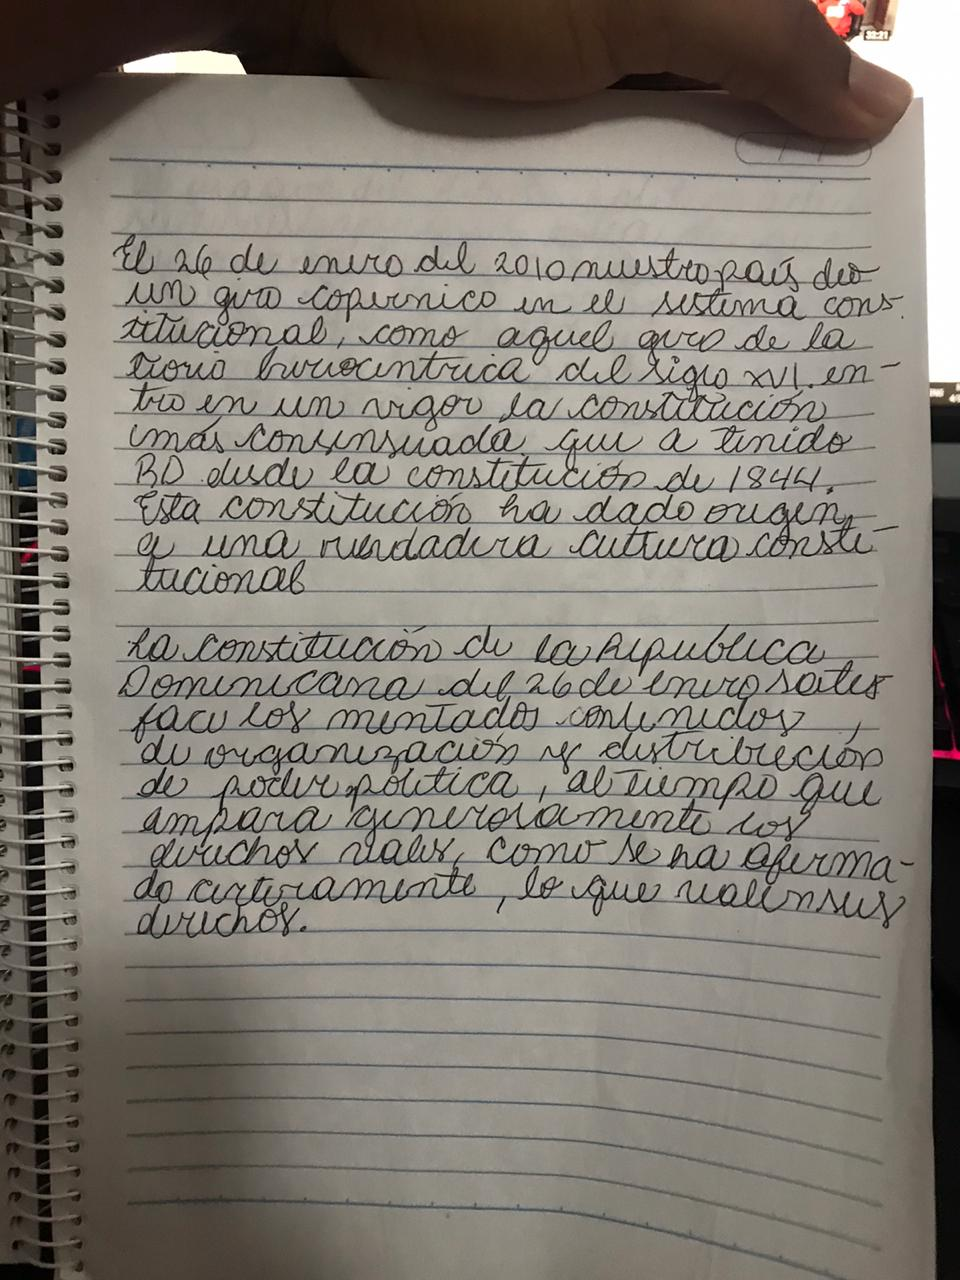 33:21
El 26 de enero del 2010 nuestro país dio
un giro copernico en el sistema cons-
titucional, como aquel giro de la
del siglo XVI. en-
tro en un vigor la constitución
más consensuada que a tenido
RD desde la constitución de 1844.
Esta constitución ha dado origen
a una verdadera cultura consti-
tucional
La constitución de la Republica
Dominicana del 26 de enero satis
face los mentados contenidos,
de organización y distribución
de poder politica, al tiempo que
ampara generosamente los
derechos reales, como se ha afirma-
do certeramente, lo que realen sus
derechos.